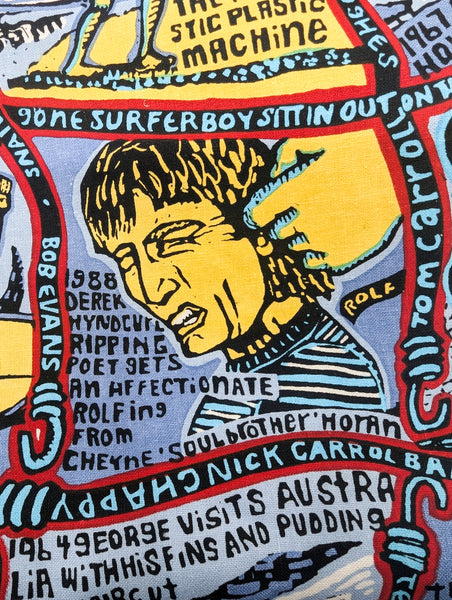 STIC PLASTIC
MACHINE
GHES
1967
gone SURFERBOY SITTIN OUT ON
SNAI
BOB EVANS
TOM CARROLL
ROLF
1988
DEREK
HYND CURL
RIPPING
POET GETS
AN AFFECTIONATE
ROLFing
FROM
CHEYNE 'SOUL brother' HORAN
CHAPPY
NICK CARROL BA
1964 gEORGE VISITS AUSTRA
LIA WITH HIS FINS AND PUDDING